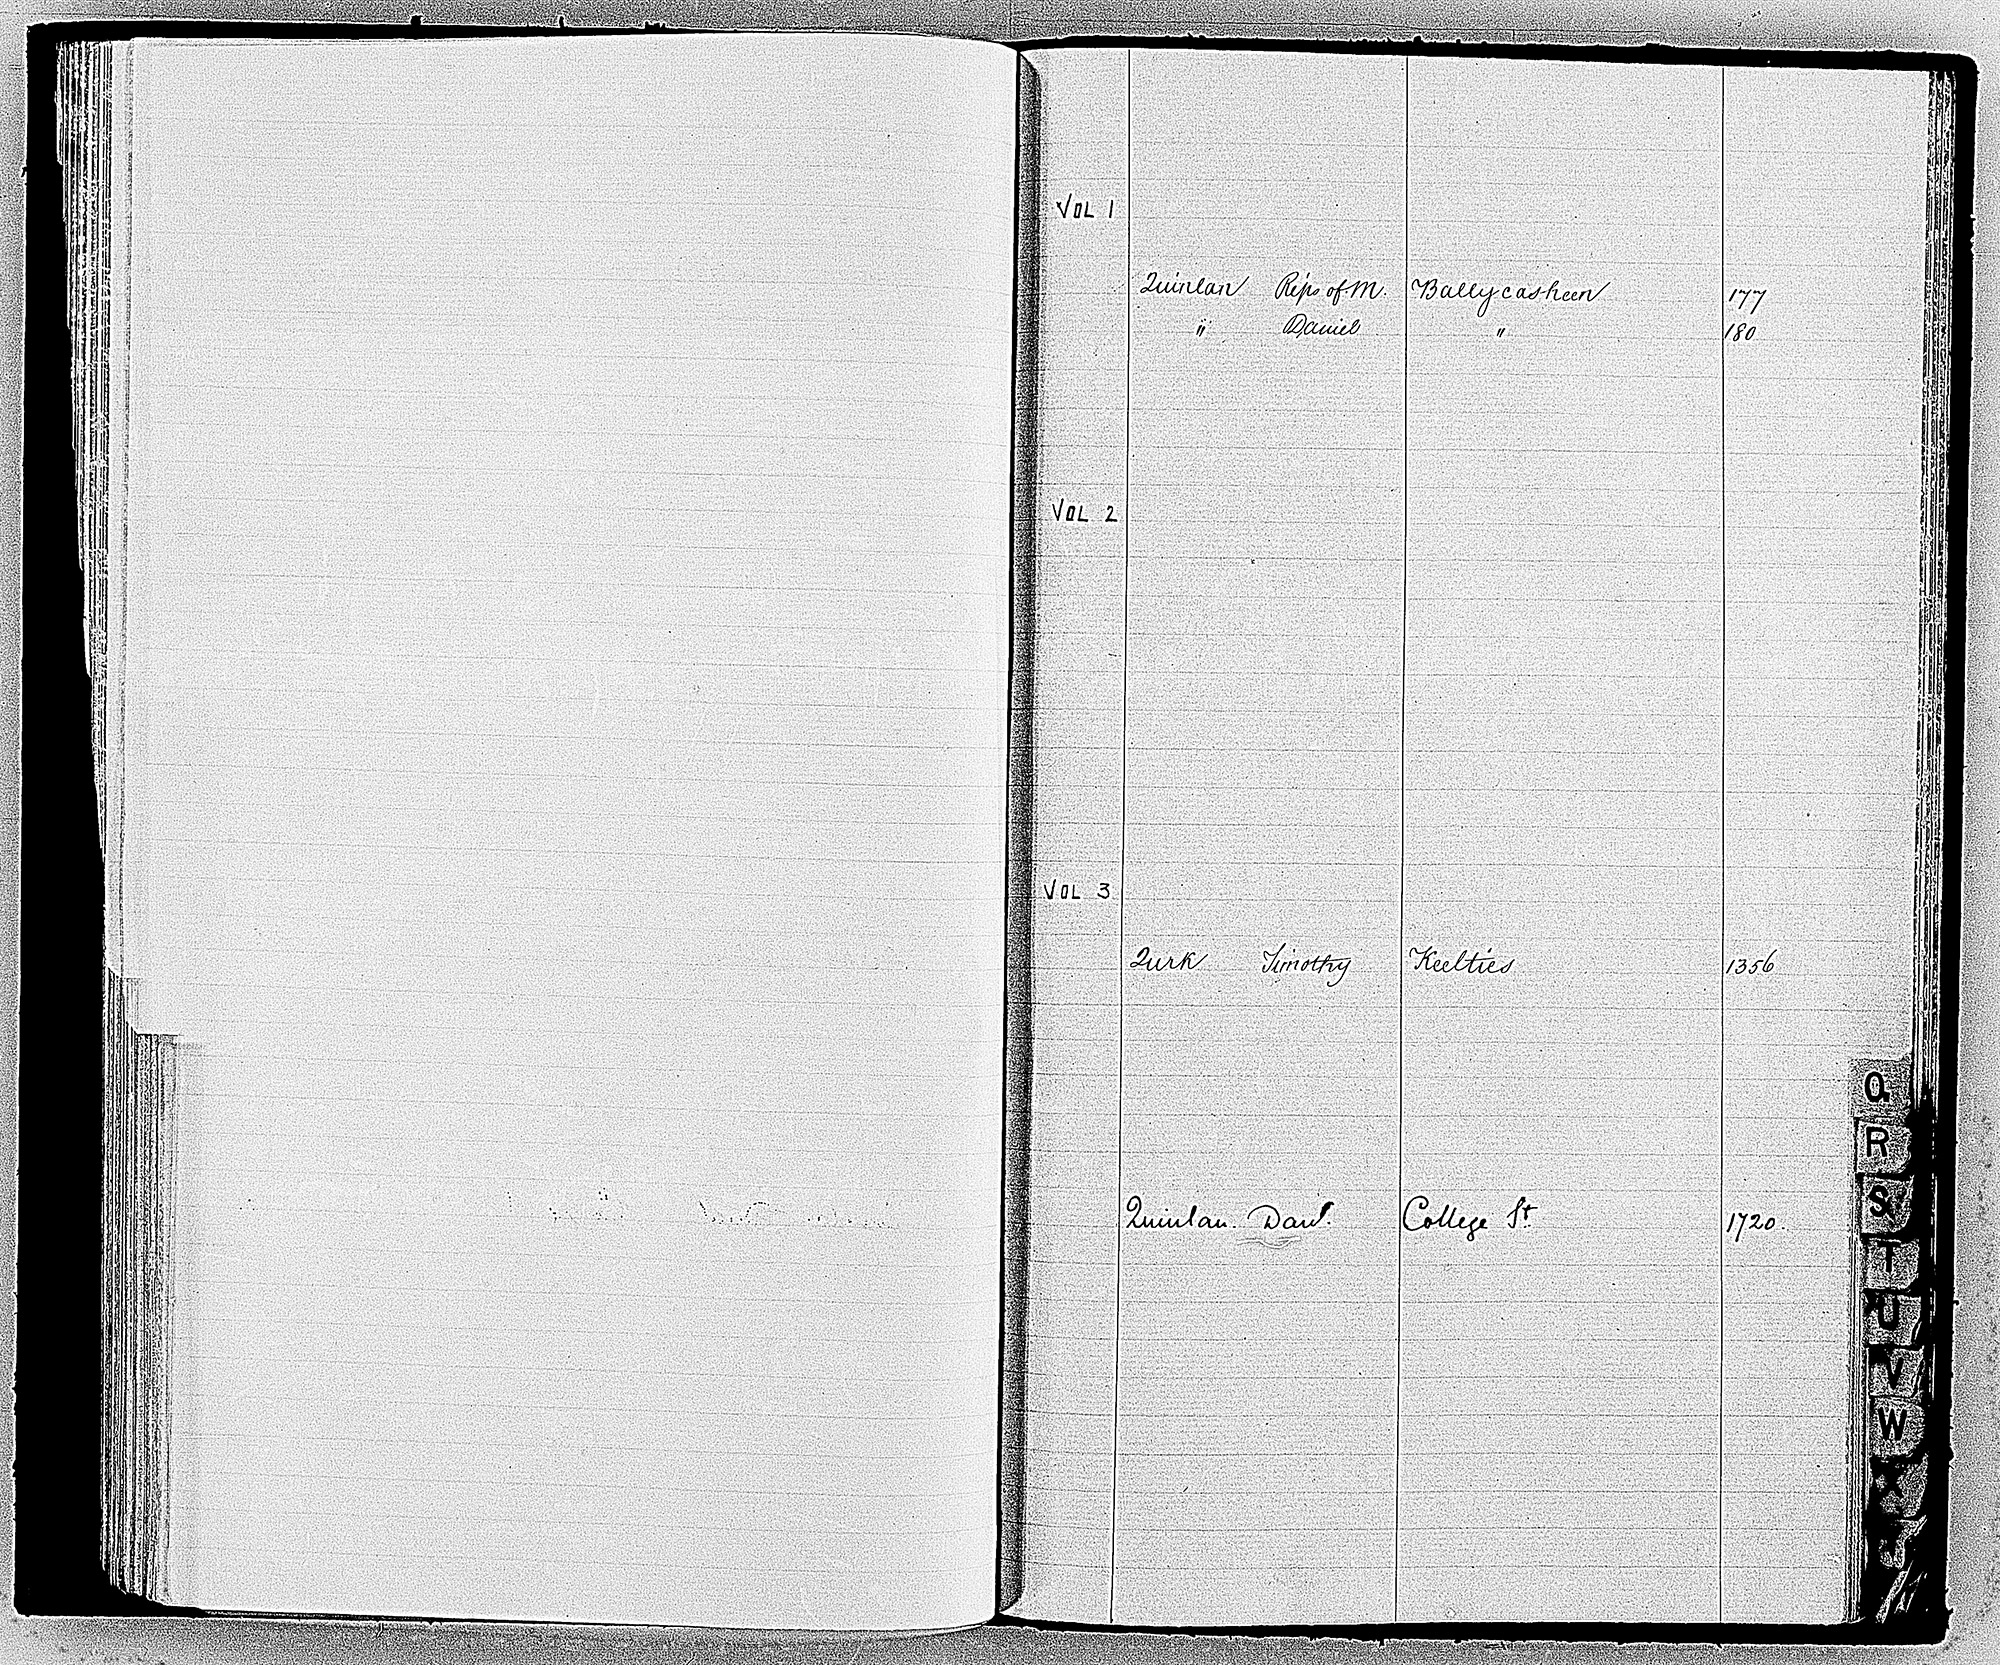 VOL 1
Quinlan Reps of M. Ballycasheen 177
" Daniel " 180
VOL 2
VOL 3
Qurk Timothy Keelties 1356
Quinlan. Danl. College St. 1720.
Q
R
S
T
U
V
W
X